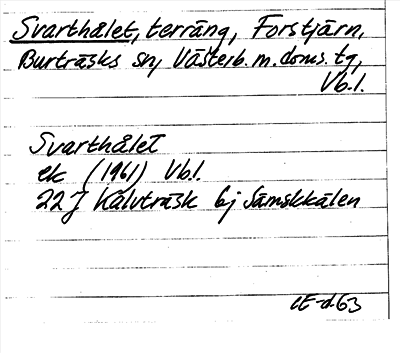 Svarthålet, terräng, Forstjärn,
Burträsks sn, Västerb. m. doms. tg,
Vb.l.
Svarthålet
ek (1961) Vb.l.
22 J Kalvträsk 6j Sämskkälen
CE-d-63